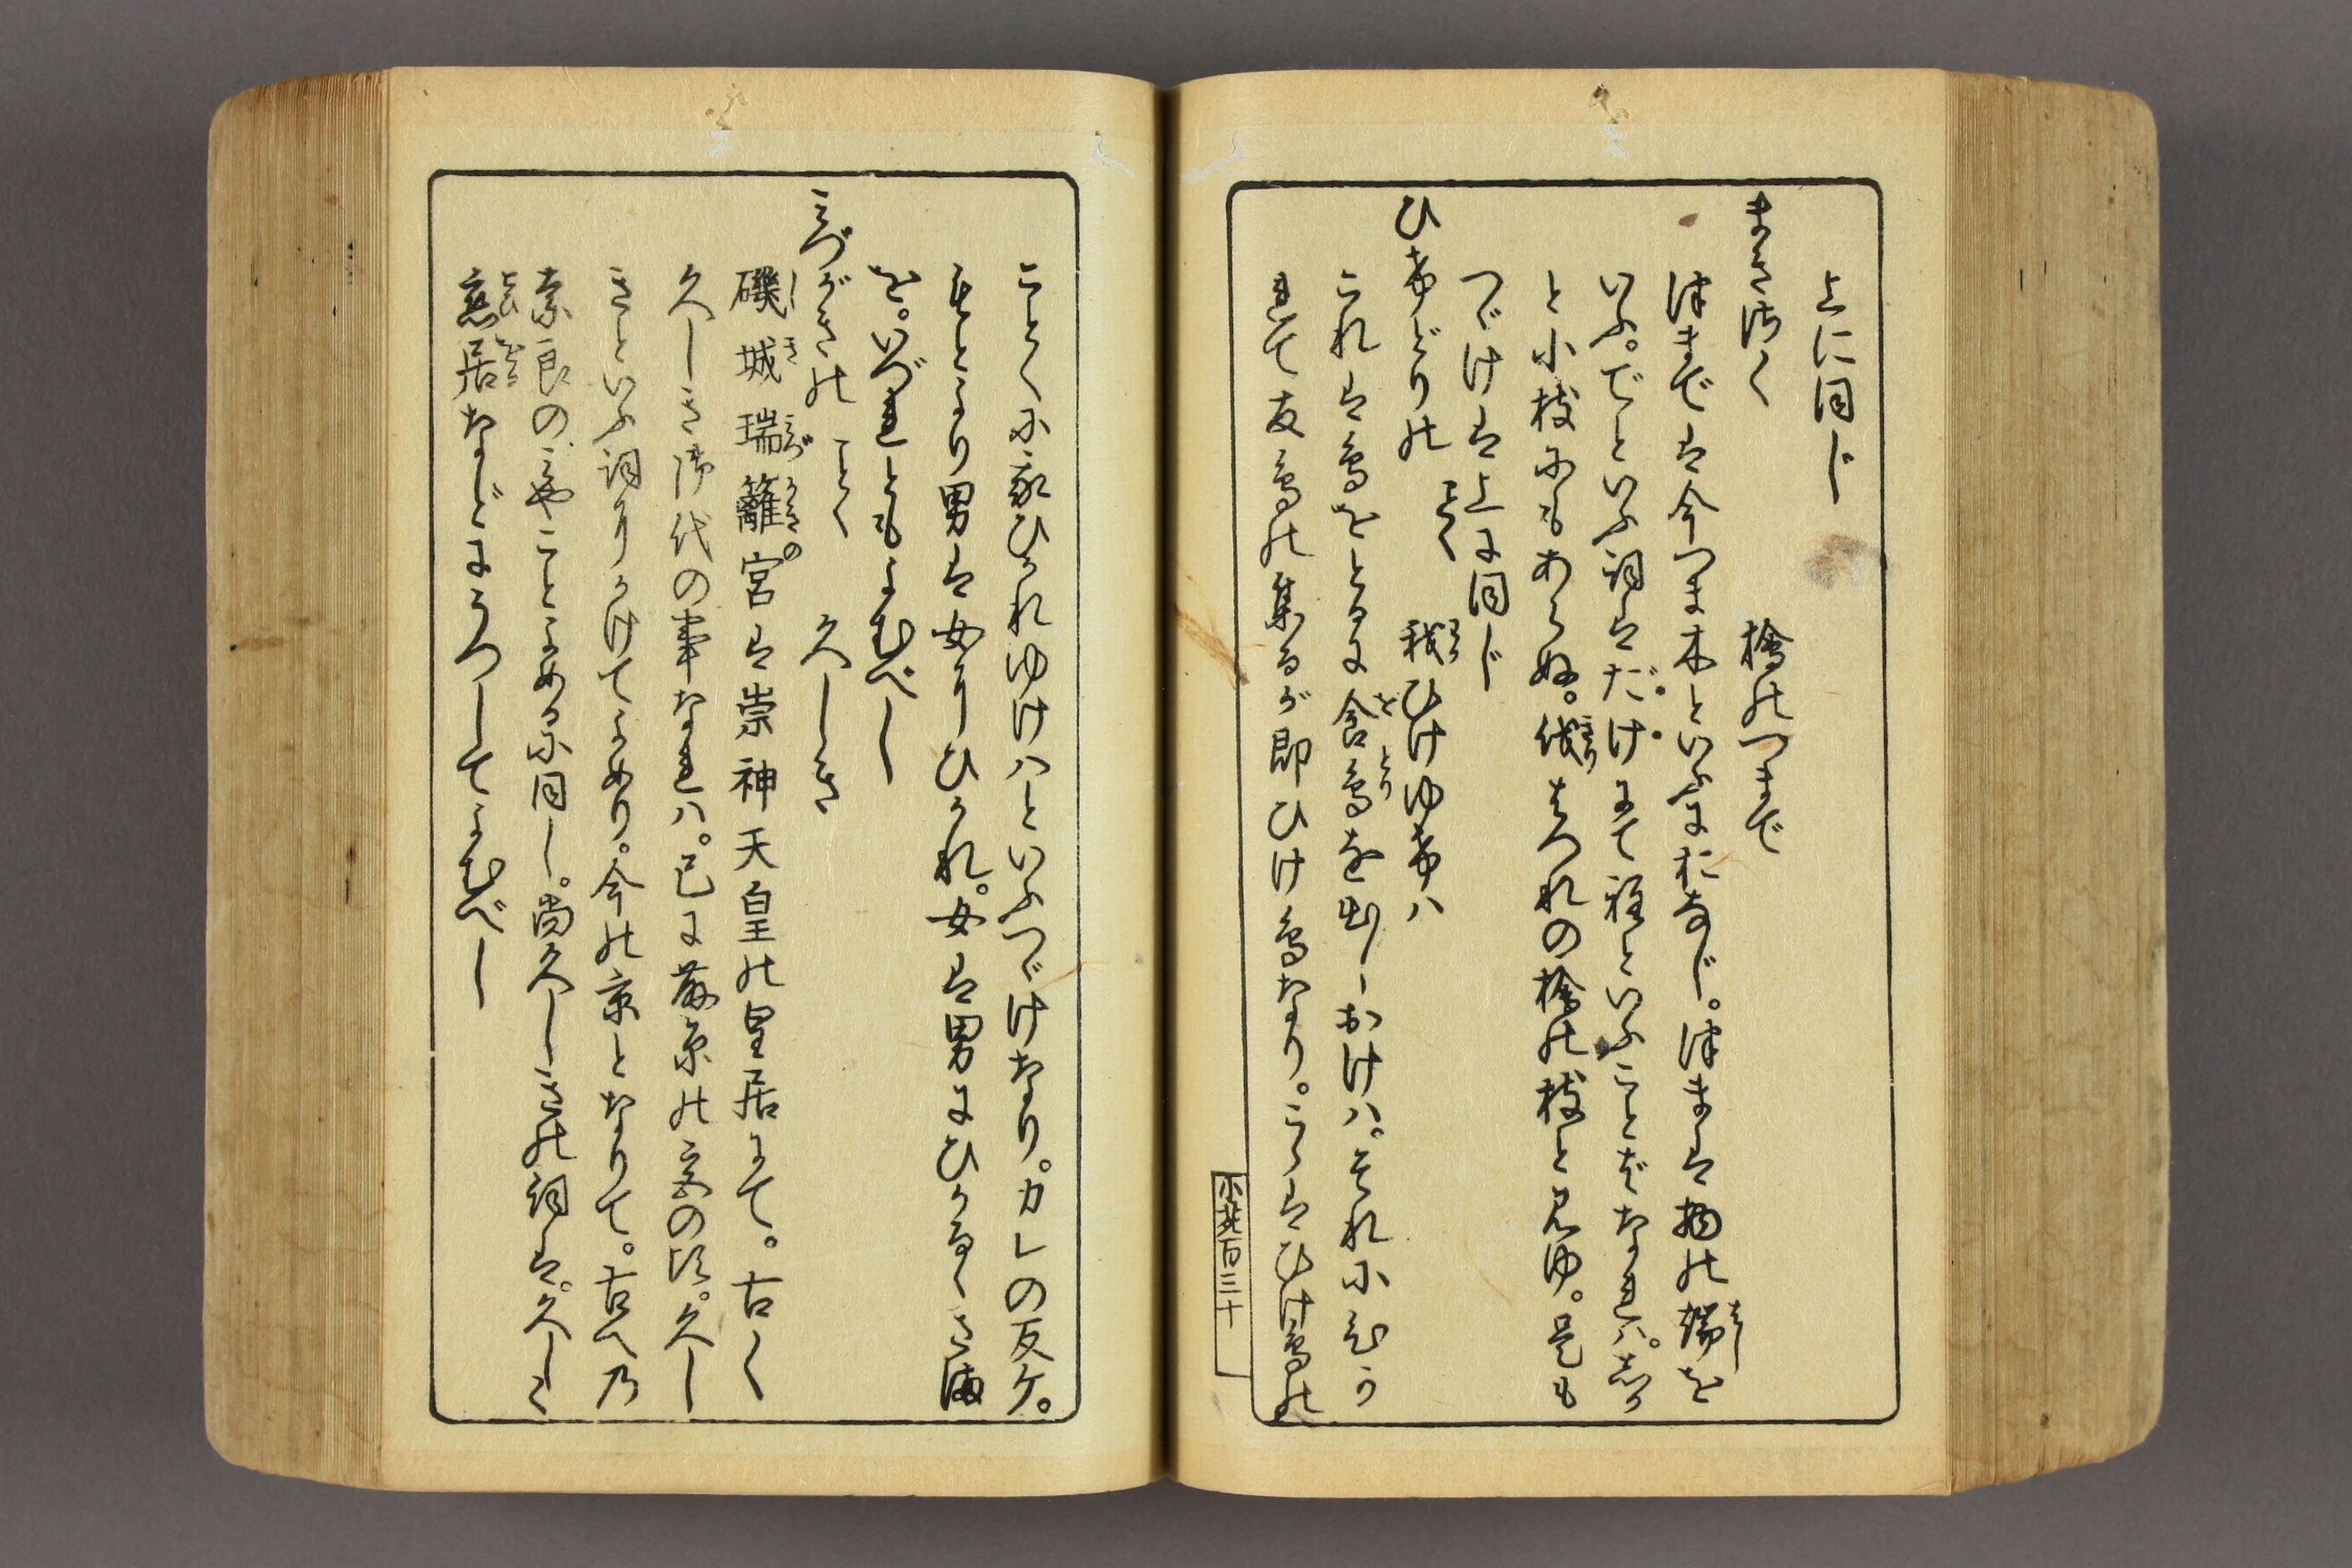 上に同じ
まきさく　檜のつまで
つまでは今つま木といふにおなじ。つまは物の端(はし)を
いふ。でといふ詞はだけにて程といふことばなれバ。しか
と小枝にもあらぬ。伐(きり)はつれの檜の枝と見ゆ。是も
つゞけは上に同じ
ひけどりの　ことく　我(わが)ひけゆけハ
これは鳥をとるに食(をとり)鳥を出しおけハ。それにひか
れて友鳥の集るが即ひけ鳥なり。こゝはひけ鳥の
小冠百三十
ことくに我ひかれゆけハといふつゞけなり。カレの反ケ。
もとより男は女にひかれ。女は男にひかるゝさま
を。いづれともよむべし
みづがきの　ことく　久しき
磯(し)城(き)瑞(みづ)籬(がきの)宮は崇神天皇の皇居にて。古く
久しき御代の事なれハ。已に藤原の宮の頃。久し
きといふ詞にかけてよめり。今の京となりて。古への
奈良のみやことよめるに同し。尚久しきの詞は。久しく
恋(こひ)居(をり)なじどにうつしてよむべし